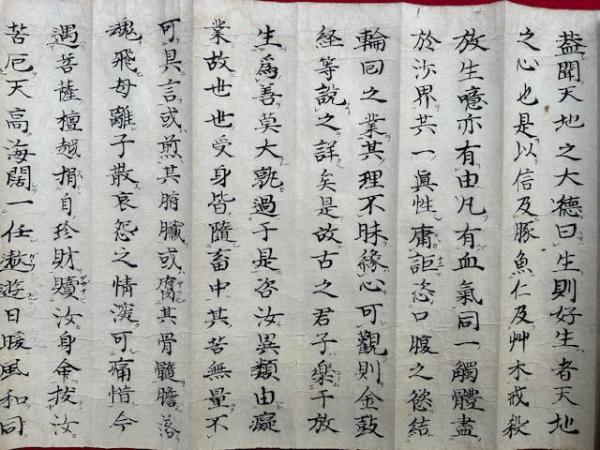 蓋聞天地之大德曰生則好生者天地
之心也是以信及豚魚仁及艸木戒殺
放生噫亦有由凡有血氣同一觸體盡
於沙界共一眞性庸詎恣口腹之慾結
輪回之業其理不昧緣心可觀則金鼓
経等說之詳矣是故古之君子樂于放
生爲善莫大孰過于是咨汝異類由癡
業故世世受身皆隨畜中其苦無量不
可具言或煎其腑臓或腐其骨髓膽落
魂飛母離子散哀怨之情深可痛惜今
遇菩薩檀越捐自珍財贖汝身命拔汝
苦厄天高海闊一任遨遊日暖風和同